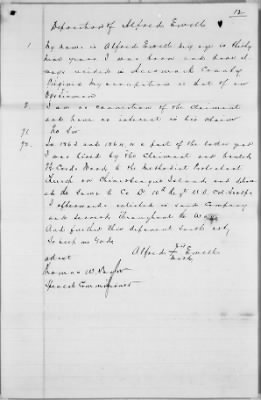 12
Deposition of Alfred Ewell
1 My name is Alfred Ewell my age is thirty
nine years. I was born and have al
ways resided in Accomack County
Virginia My occupation is that of an
Oysterman
2. I am no connection of the Claimant
and have no interest in his claim
No Sir
In 1863 and 1864, or a part of the latter year
I was hired by the Claimant and hauled
Cords Wood, to the Methodist Protestant
Church on Chincoteague Island, and
at the same to Co Regt U.S. Col Troops
I afterwards enlisted in said Company
and served throughout the War
And further this deponent saith not,
So help me God.
Alfred his Ewell
mark
attest
Thomas W. Taylor
Special Commissioner